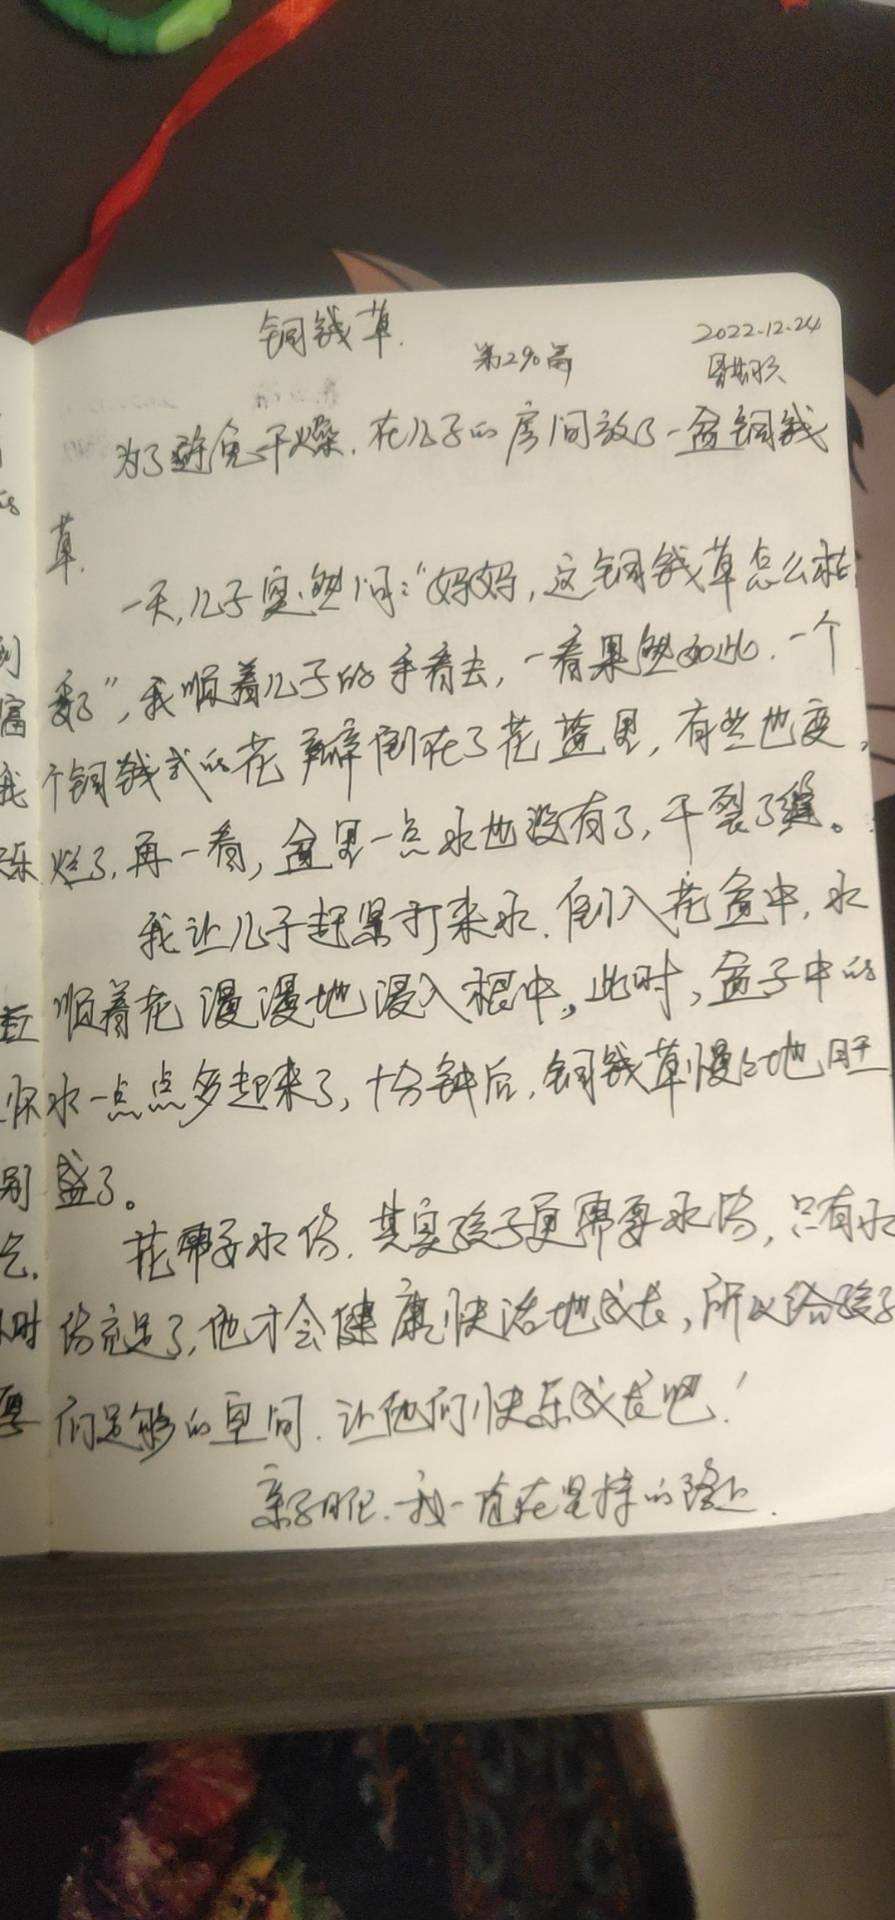 铜钱草.
第290篇
2022.12.24
星期六
为了避免干燥.在儿子的房间放了一盆铜钱
草.
一天,儿子突然问:“妈妈,这铜钱草怎么枯
萎了”,我顺着儿子的手看去,一看果然如此.一个
个铜钱式的花瓣倒在了花盆里,有些也变
烂了.再一看,盆里一点水也没有了,干裂了缝。
我让儿子赶紧打来水.倒入花盆中.水
顺着花漫漫地浸入根中,此时,盆子中的
水一点点多起来了,十分钟后,铜钱草慢慢地旺
盛了。
花需要水份.其实孩子更需要水份,只有水
份充足了,他才会健康快活地成长,所以给孩子
们足够的空间.让他们快乐成长吧!
亲子日记.我一直在坚持的路上.